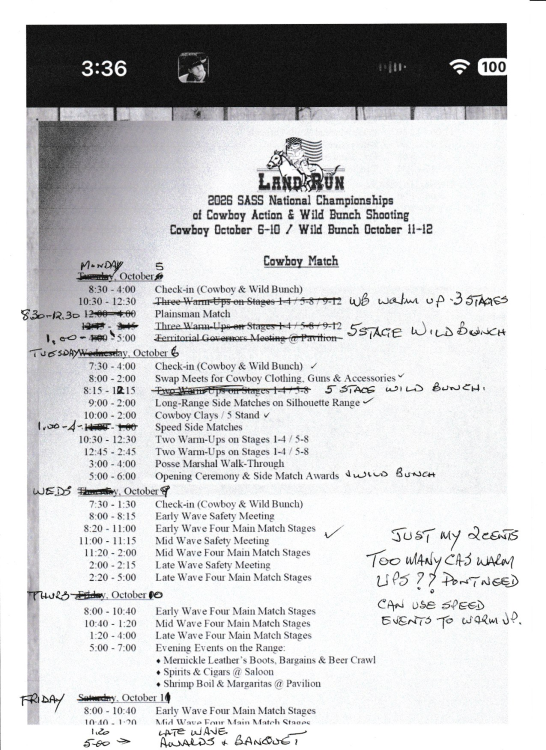 3:36
100
LAND RUN
2026 SASS National Championships
of Cowboy Action & Wild Bunch Shooting
Cowboy October 6-10 / Wild Bunch October 11-12
Cowboy Match
MONDAY 5
Tuesday, October
8:30 - 4:00 Check-in (Cowboy & Wild Bunch)
10:30 - 12:30 Three Warm-Ups on Stages 1-4 / 5-8 / 9-12 WB WARM UP - 3 STAGES
830-12.30 12:00 - 4:00 Plainsman Match
12:45 - 2:45 Three Warm-Ups on Stages 1-4 / 5-8 / 9-12 5 STAGE WILD BUNCH
1,00 - 5:00 Territorial Governors Meeting @ Pavilion
TUESDAY Wednesday, October 6
7:30 - 4:00 Check-in (Cowboy & Wild Bunch) ✓
8:00 - 2:00 Swap Meets for Cowboy Clothing, Guns & Accessories ✓
8:15 - 12:15 Two Warm-Ups on Stages 1-4 / 5-8 5 STAGE WILD BUNCH.
9:00 - 2:00 Long-Range Side Matches on Silhouette Range ✓
10:00 - 2:00 Cowboy Clays / 5 Stand ✓
1,00-4- 1:00 Speed Side Matches
10:30 - 12:30 Two Warm-Ups on Stages 1-4 / 5-8
12:45 - 2:45 Two Warm-Ups on Stages 1-4 / 5-8
3:00 - 4:00 Posse Marshal Walk-Through
5:00 - 6:00 Opening Ceremony & Side Match Awards & WILD BUNCH
WEDS Thursday, October
7:30 - 1:30 Check-in (Cowboy & Wild Bunch)
8:00 - 8:15 Early Wave Safety Meeting
8:20 - 11:00 Early Wave Four Main Match Stages
11:00 - 11:15 Mid Wave Safety Meeting ✓
11:20 - 2:00 Mid Wave Four Main Match Stages
2:00 - 2:15 Late Wave Safety Meeting
2:20 - 5:00 Late Wave Four Main Match Stages
JUST MY 2CENTS
TOO MANY CAS WARM
UPS?? DONT NEED
CAN USE SPEED
EVENTS TO WARM UP.
THURS Friday, October
8:00 - 10:40 Early Wave Four Main Match Stages
10:40 - 1:20 Mid Wave Four Main Match Stages
1:20 - 4:00 Late Wave Four Main Match Stages
5:00 - 7:00 Evening Events on the Range:
♦ Mernickle Leather's Boots, Bargains & Beer Crawl
♦ Spirits & Cigars @ Saloon
♦ Shrimp Boil & Margaritas @ Pavilion
FRIDAY Saturday, October
8:00 - 10:40 Early Wave Four Main Match Stages
10:40 - 1:20 Mid Wave Four Main Match Stages
1:20 LATE WAVE
5-600 → AWARDS & BANQUET